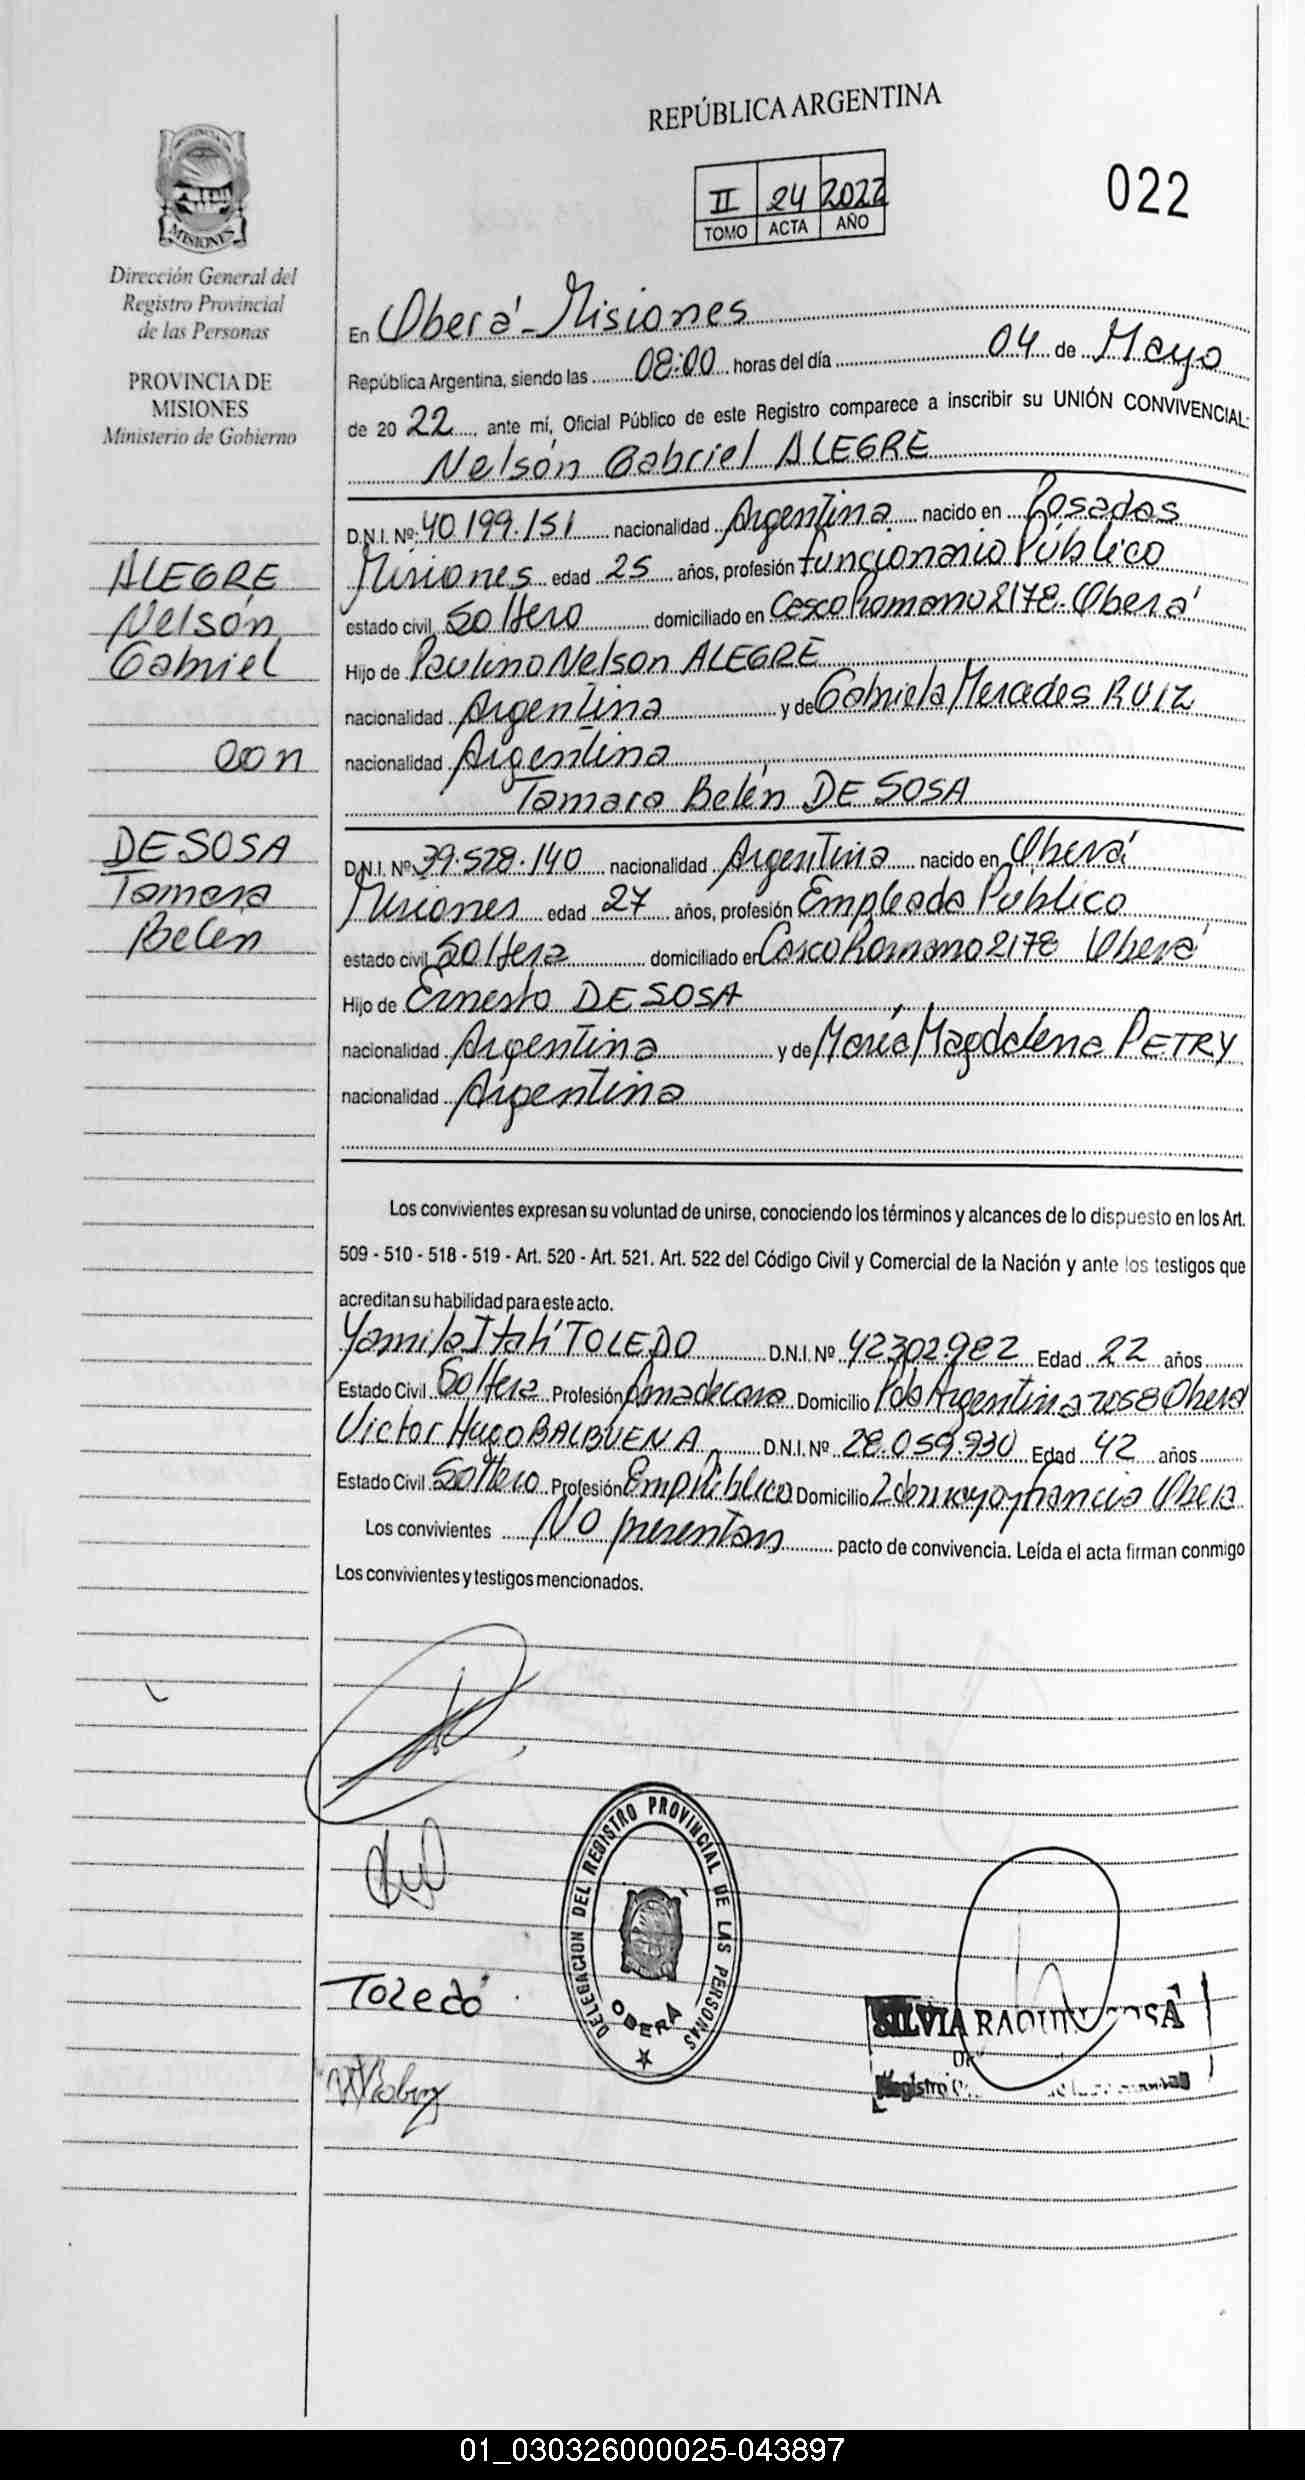 REPÚBLICA ARGENTINA
II 24 2022
TOMO ACTA AÑO
022
PROVINCIA DE
MISIONES
Dirección General del
Registro Provincial
de las Personas
PROVINCIA DE
MISIONES
Ministerio de Gobierno
ALEGRE
Nelsón
Gabriel
con
DE SOSA
Tamara
Belén
En Oberá - Misiones
República Argentina, siendo las 08:00 horas del día 04 de Mayo
de 20 22, ante mí, Oficial Público de este Registro comparece a inscribir su UNIÓN CONVIVENCIAL:
Nelsón Gabriel ALEGRE
D.N.I. Nº: 40.199.151 nacionalidad Argentina nacido en Posadas
Misiones edad 25 años, profesión funcionario Público
estado civil Soltero domiciliado en Casco Romano 2178. Oberá
Hijo de Paulino Nelson ALEGRE
nacionalidad Argentina y de Gabriela Mercedes RUIZ
nacionalidad Argentina
Tamara Belén DE SOSA
D.N.I. Nº 39.528.140 nacionalidad Argentina nacido en Oberá
Misiones edad 27 años, profesión Empleada Público
estado civil Soltera domiciliado en Casco Romano 2178 Oberá
Hijo de Ernesto DE SOSA
nacionalidad Argentina y de María Magdalena PETRY
nacionalidad Argentina
Los convivientes expresan su voluntad de unirse, conociendo los términos y alcances de lo dispuesto en los Art.
509 - 510 - 518 - 519 - Art. 520 - Art. 521. Art. 522 del Código Civil y Comercial de la Nación y ante los testigos que
acreditan su habilidad para este acto.
Yamila Itatí TOLEDO D.N.I. Nº 42302.982 Edad 22 años
Estado Civil Soltera Profesión Ama de casa Domicilio Rda Argentina Oberá
Victor Hugo BALBUENA D.N.I. Nº 28.059.930 Edad 42 años
Estado Civil Soltero Profesión Emp Público Domicilio 2 de mayo y francia Oberá
Los convivientes No presentan pacto de convivencia. Leída el acta firman conmigo
Los convivientes y testigos mencionados.
DELEGACION DEL REGISTRO PROVINCIAL DE LAS PERSONAS
OBERÁ
Toledo
SILVIA
Registro
01_030326000025-043897